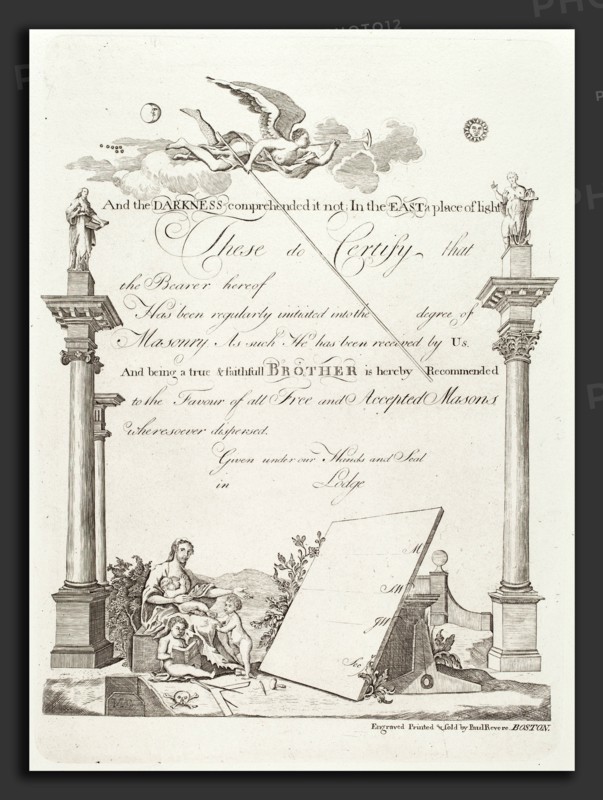 And the DARKNESS comprehended it not. In the EAST a place of light
These do Certify that
the Bearer hereof
Has been regularly initiated into the degree of
Masonry As such He has been received by Us.
And being a true & faithfull BROTHER is hereby Recommended
to the Favour of all Free and Accepted Masons
wheresoever dispersed.
Given under our Hands and Seal
in Lodge
M
SW
JW
Sec
Engraved Printed & sold by Paul Revere BOSTON.